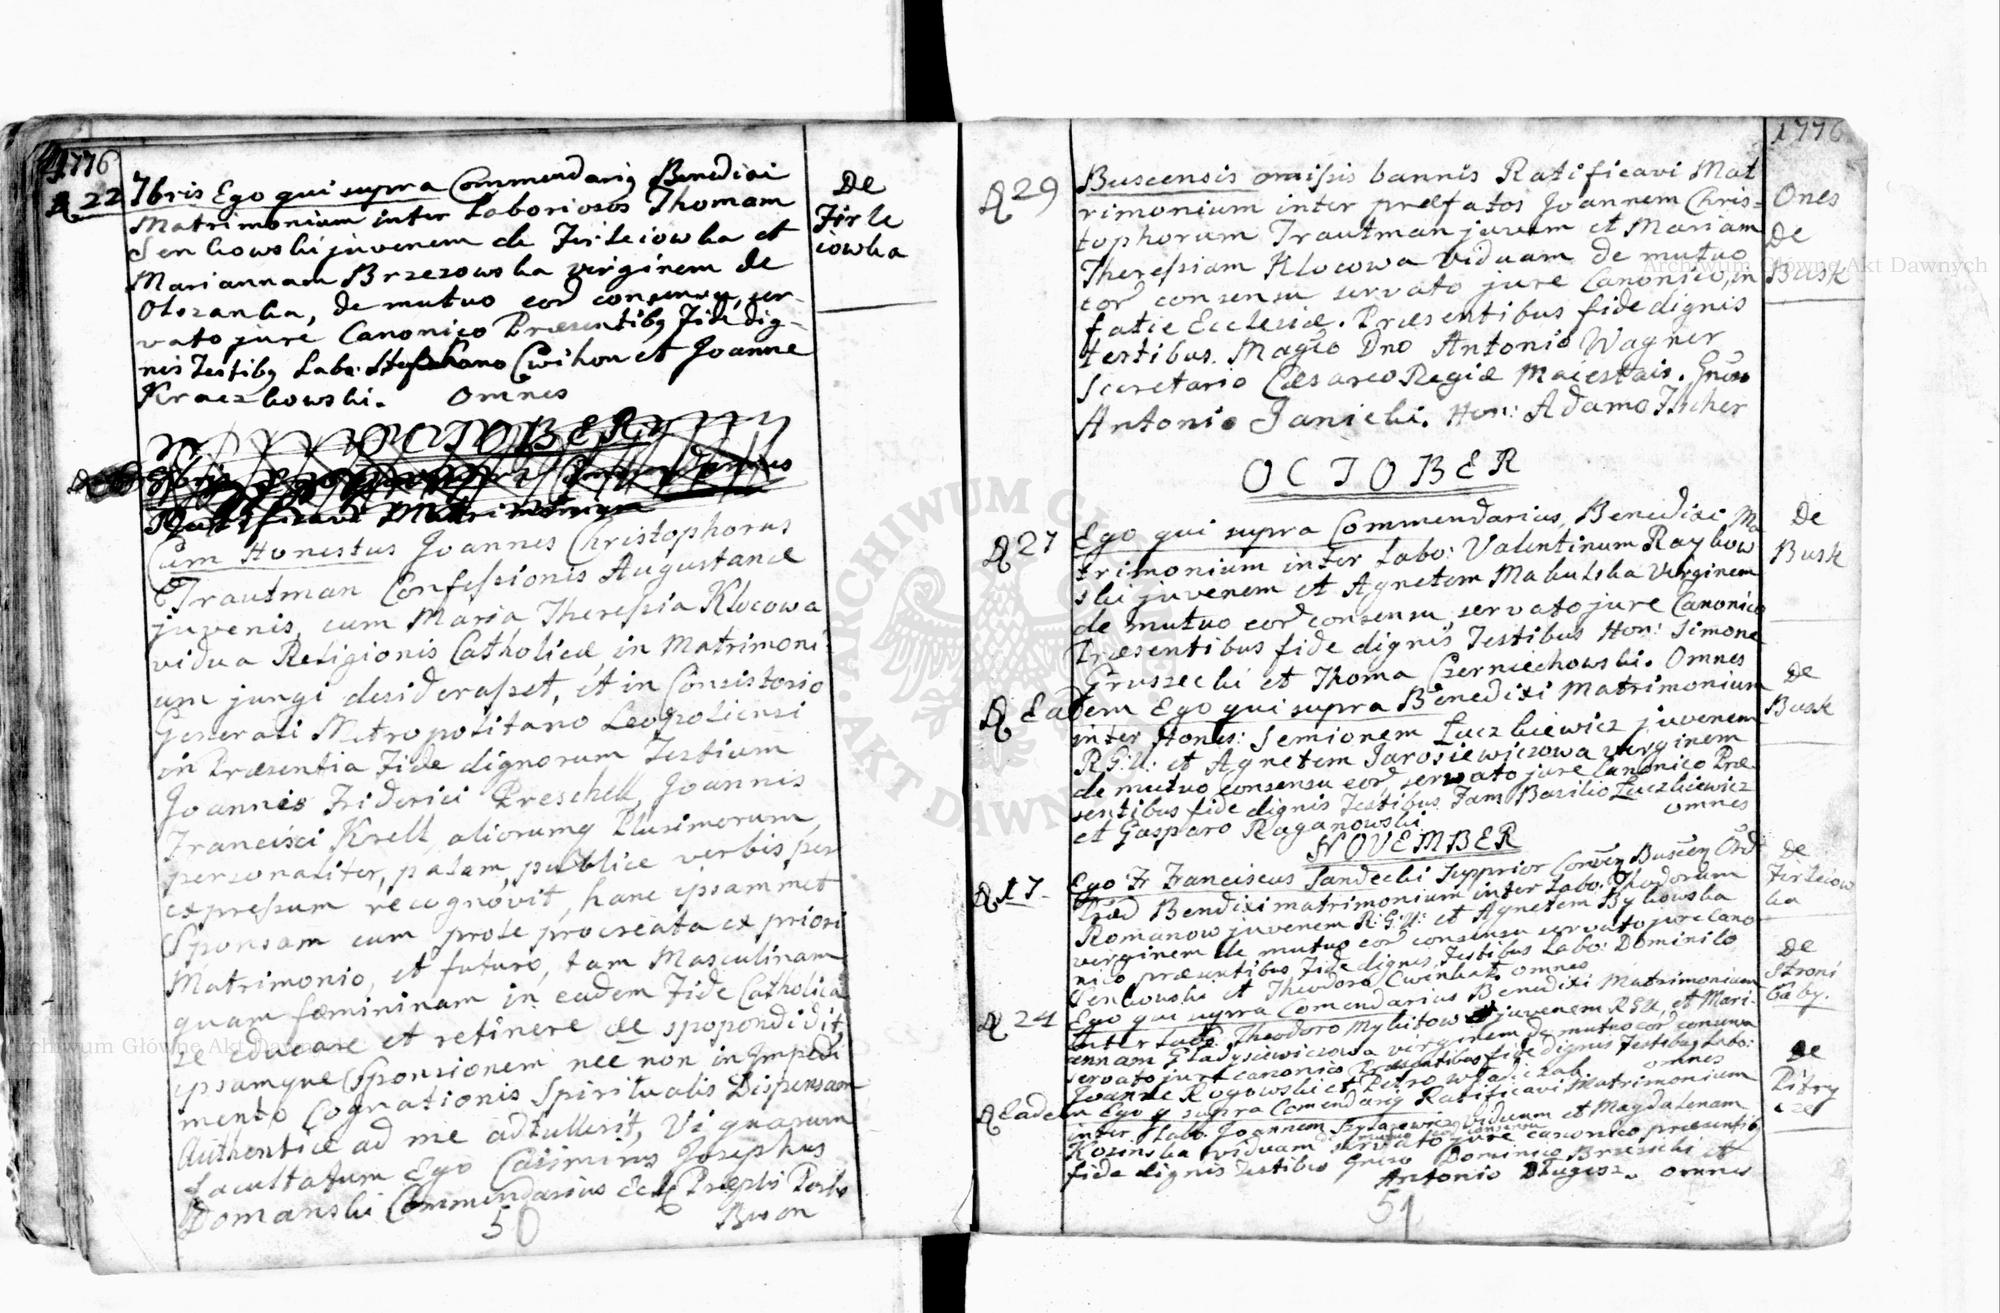 1776
D 22 7bris Ego qui supra Commendariq Benedixi
Matrimonium inter Laboriosos Thomam
Senkowski juvenem de Firleiowka et
Mariannam Brzezowska virginem de
Olszanka, de mutuo eor consensu, ser-
vato jure Canonico Præsentibq Fide dig-
nis Testibq Labo: Stephano Cwikou et Joanne
Kraczkowski. Omnes
De
Firle
iowka
OCTOBER
Ratificavi Matrimonium
Cum Honestus Joannes Christophorus
Trautman Confessionis Augustanæ
juvenis, cum Maria Theressia Klocowa
vidua Religionis Catholicæ, in Matrimoni-
um jungi desiderasset, et in Consistorio
Generali Metropolitano Leopoliensi
in Præsentia Fide dignorum Testium
Joannis Friderici Preschell, Joannis
Francisci Krell, aliorumq Plurimorum,
personaliter, palam, publice verbis per
expressum recognovit, hanc ipsammet
Sponsam cum prole procreata ex priori
Matrimonio, et futuro, tam Masculinam
quam fœmininam in eadem Fide Catholica
se educare et retinere de spopondidit,
ipsamque Sponsionem nec non in Impedi
mento Cognationis Spiritualis Dispensam
Authentice ad me adtullerit, Vi quarum
facultatum Ego Casimirus Josephus
Domanski Commendarius Ecclæ Præpti Parlis
Buscen
50
1776
D 29 Buscensis omissis bannis Ratificavi Mat
rimonium inter præfatos Joannem Chris=
tophorum Trautman juvem et Mariam
Theressiam Klocowa viduam de mutuo
eor consensu servato jure Canonico, in
facie Ecclesiæ. Præsentibus fide dignis
testibus. Magco Dno Antonio Wagner
Secretario Cæsareo Regiæ Maiestais. Gnso
Antonio Janicki. Hon: Adamo Fischer
Ones
De
Busk
OCTOBER
D 27 Ego qui supra Commendarius, Benedixi Ma
trimonium inter Labo: Valentinum Raykow
ski juvenem et Agnetem Makulska Virginem
de mutuo eor consensu, servato jure Canonico
Præsentibus fide dignis Testibus Hon: Simone
Gruszecki et Thoma Czerniechowski. Omnes
De
Busk
D Eadem Ego qui supra Benedixi Matrimonium
inter Hones: Semionem Łuczkiewicz juvenem
R.G.U: et Agnetem Jarosiewiczowa virginem
de mutuo consensu eor, servato jure Canonico Præ-
sentibus fide dignis Testibus Fam Basilio Łuczkiewicz
et Gasparo Raganowski omnes
de
Busk
NOVEMBER
D 17. Ego Fr Franciscus Sandecki Supprior Conven Buscen Ord
Præd Bendixi matrimonium inter Labo: Theodorum
Romanow juvenem R:G:U: et Agnetem Bykowska
verginem de mutuo eor consensu servato jure Cano
nico præsentibus Fide dignis Testibus Labo: Dominiko
Senkowski et Theodoro Cwenkat. omnes
de
Firleiow
ka
D 24 Ego qui supra Comendarius Benedixi Matrimonium
inter Labo: Theodoro Mykitow juvenem RGU, et Mari-
annam Gladysiewiczowa virginem de mutuo eor consensu
servato jure canonico Præsentibus fide dignis Testibus Labo:
Joanne Rogowski et Petro omnes
de
Stroni
baby.
D Eadem Ego q supra Comendariq Ratificavi Matrimonium
inter Labo: Joannem viduum et Magdalenam
Kozinska viduam de mutuo eor consensu servato jure canonico præsentibq
fide dignis testibus Gnso Dominico Brzeski et
Antonio Dlugosz. omnes
de
Pitry
cze
51
Archiwum Główne Akt Dawnych
Archiwum Główne Akt Dawnych
ARCHIWUM GŁÓWNE AKT DAWNYCH